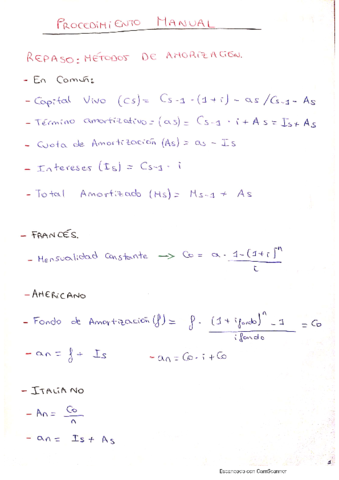 PROCEDIMIENTO MANUAL
REPASO: MÉTODOS DE AMORIZACIÓN.
- En Común:
- Capital Vivo (Cs) = Cs-1 · (1+i) - as / Cs-1 - As
- Término amortizativo = (as) = Cs-1 · i + As = Is + As
- Cuota de Amortización (As) = as - Is
- Intereses (Is) = Cs-1 · i
- Total Amortizado (Ms) = Ms-1 + As
- FRANCÉS.
- Mensualidad Constante → Co = a · 1-(1+i)^n / i
- AMERICANO
- Fondo de Amortización (f) = f · (1+ifondo)^n - 1 / ifondo = Co
- an = f + Is - an = Co · i + Co
- ITALIANO
- An = Co / n
- an = Is + As
Escaneado con CamScanner